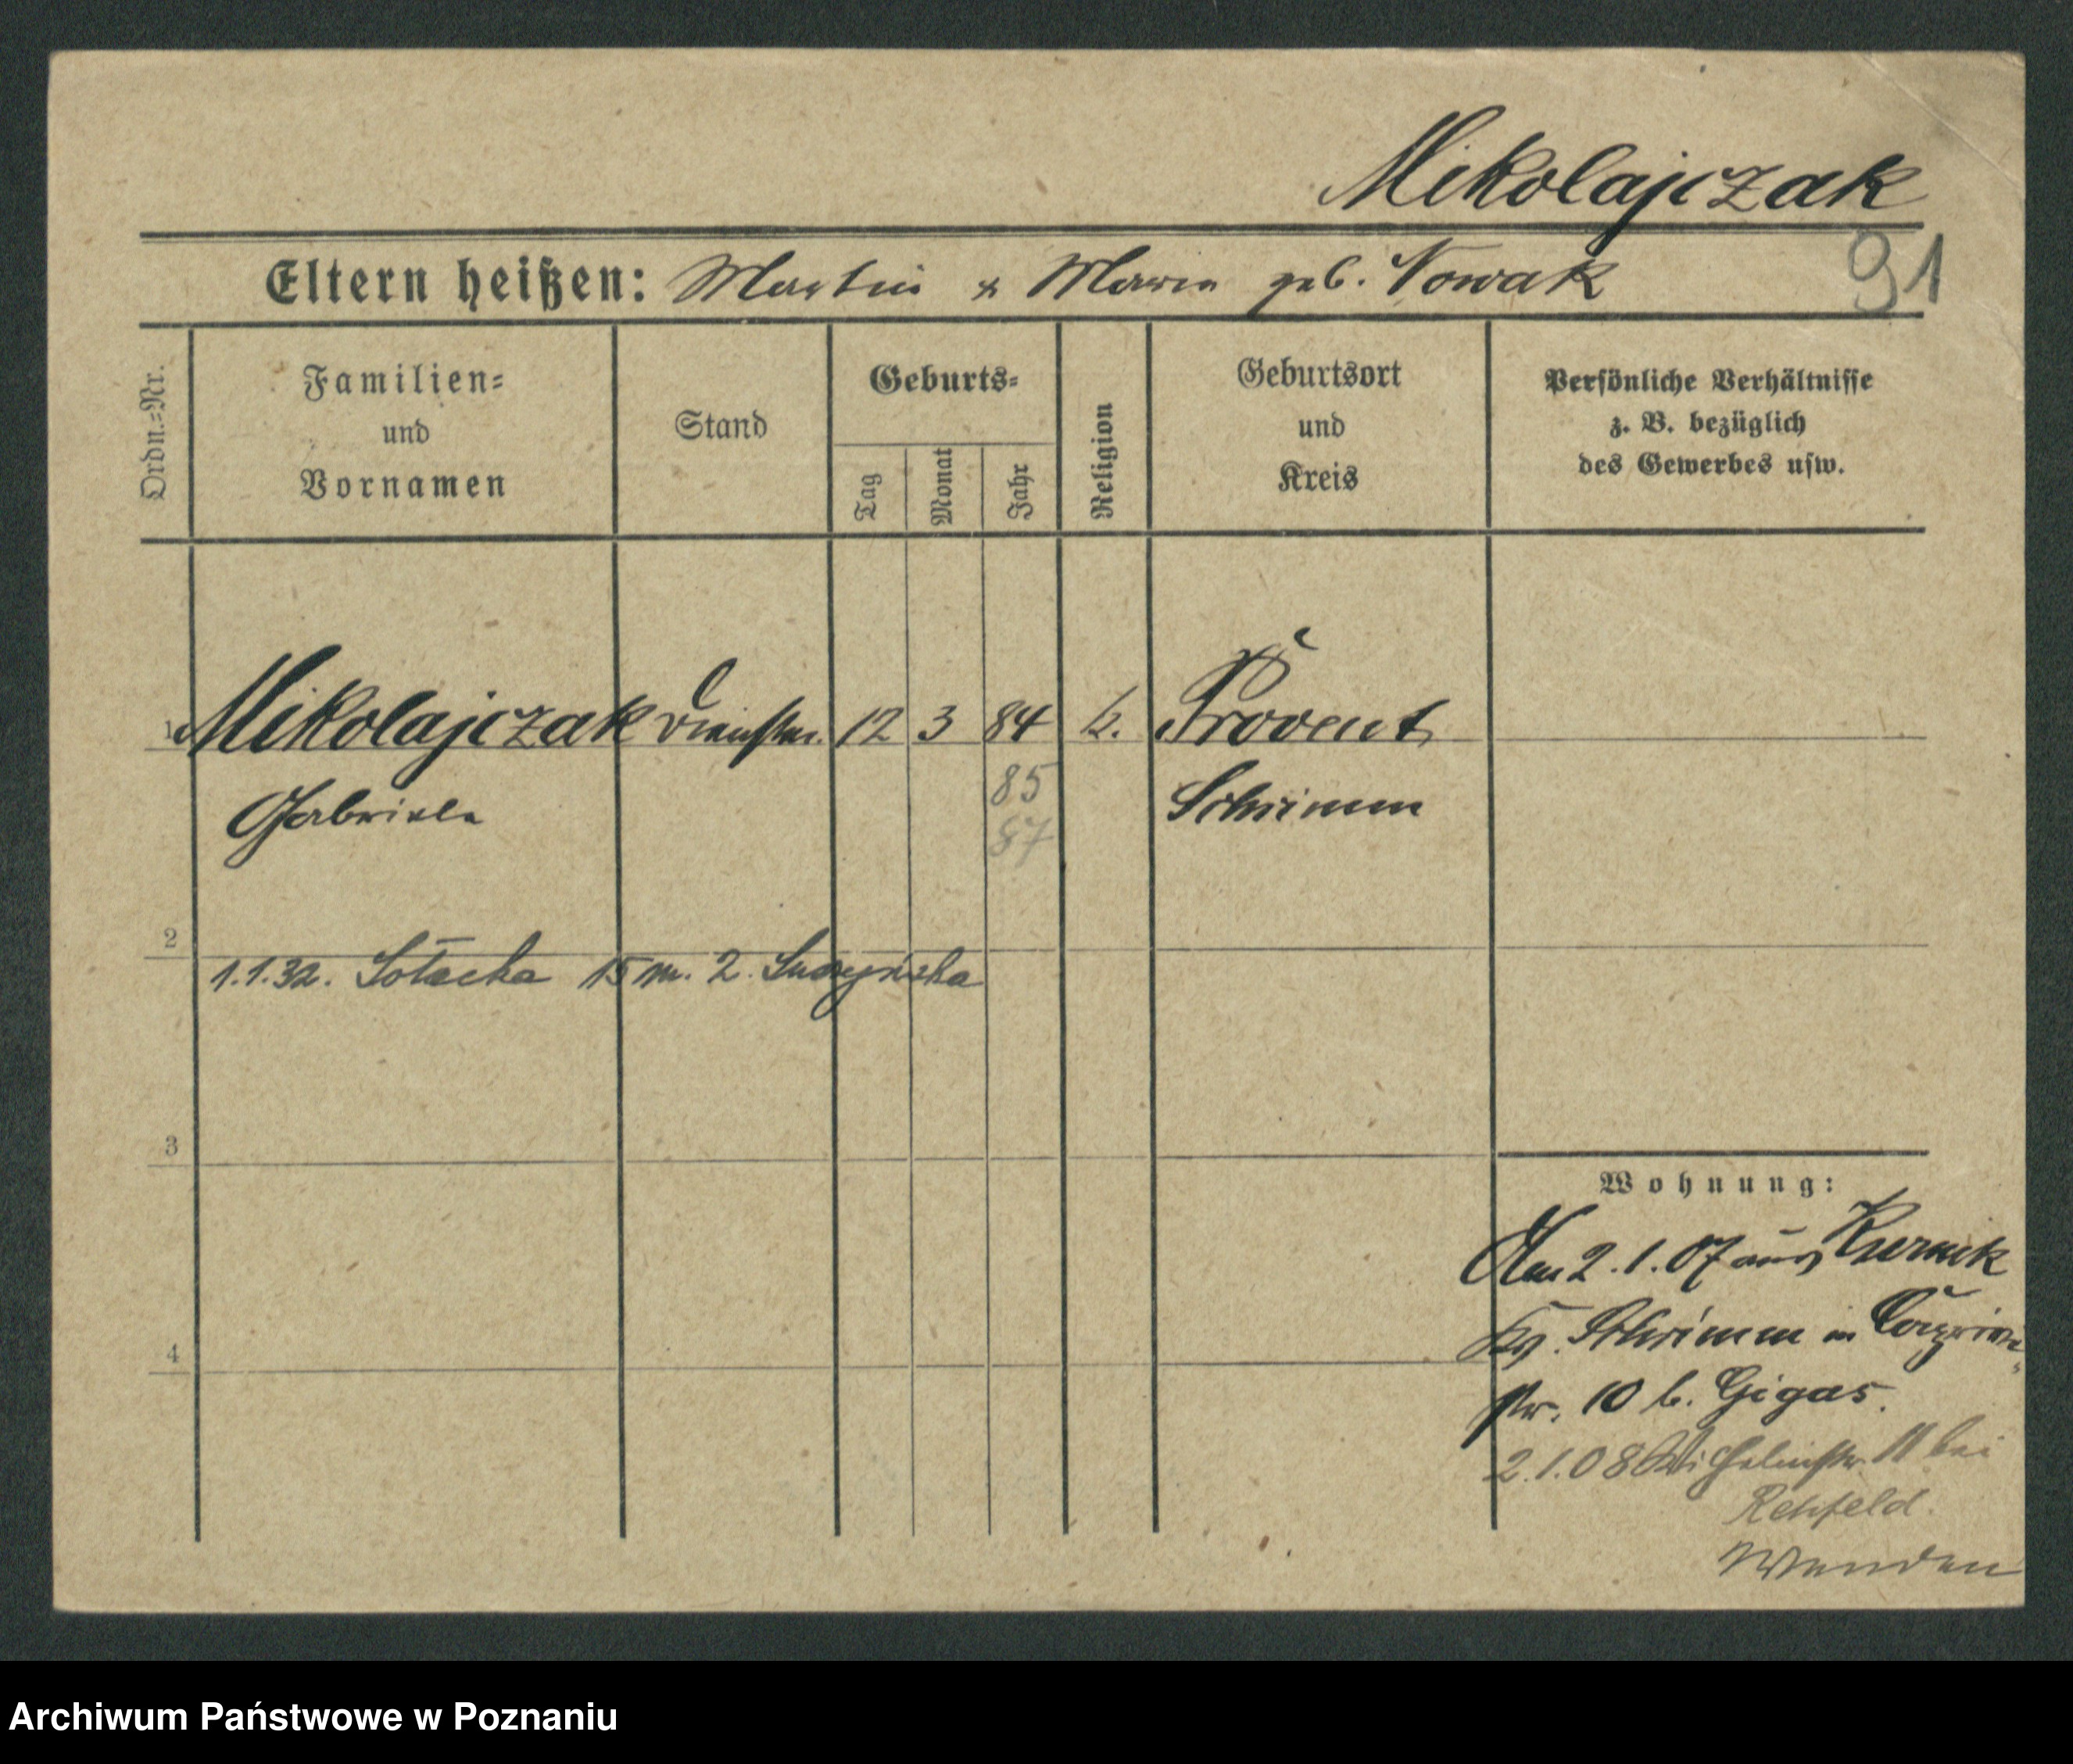 Mikolajczak
91
Eltern heißen: Martin & Maria geb. Nowak
Ordn.=Nr.
Familien=
und
Vornamen
Stand
Geburts=
Tag
Monat
Jahr
Religion
Geburtsort
und
Kreis
Persönliche Verhältnisse
z. B. bezüglich
des Gewerbes usw.
1 Mikolajczak Dienstm. 12 3 84 k. Provent
Gabriela 85 Schrimm
87
2
1.1.32. Sołacka 15 m. 2.
3
4
Wohnung:
Am 2.1.07 aus Kurnik
Kr. Schrimm in
str. 10 b. Gigas.
2.1.08 Wilhelmstr. 11 bei
Rehfeld.
Wenden
Archiwum Państwowe w Poznaniu